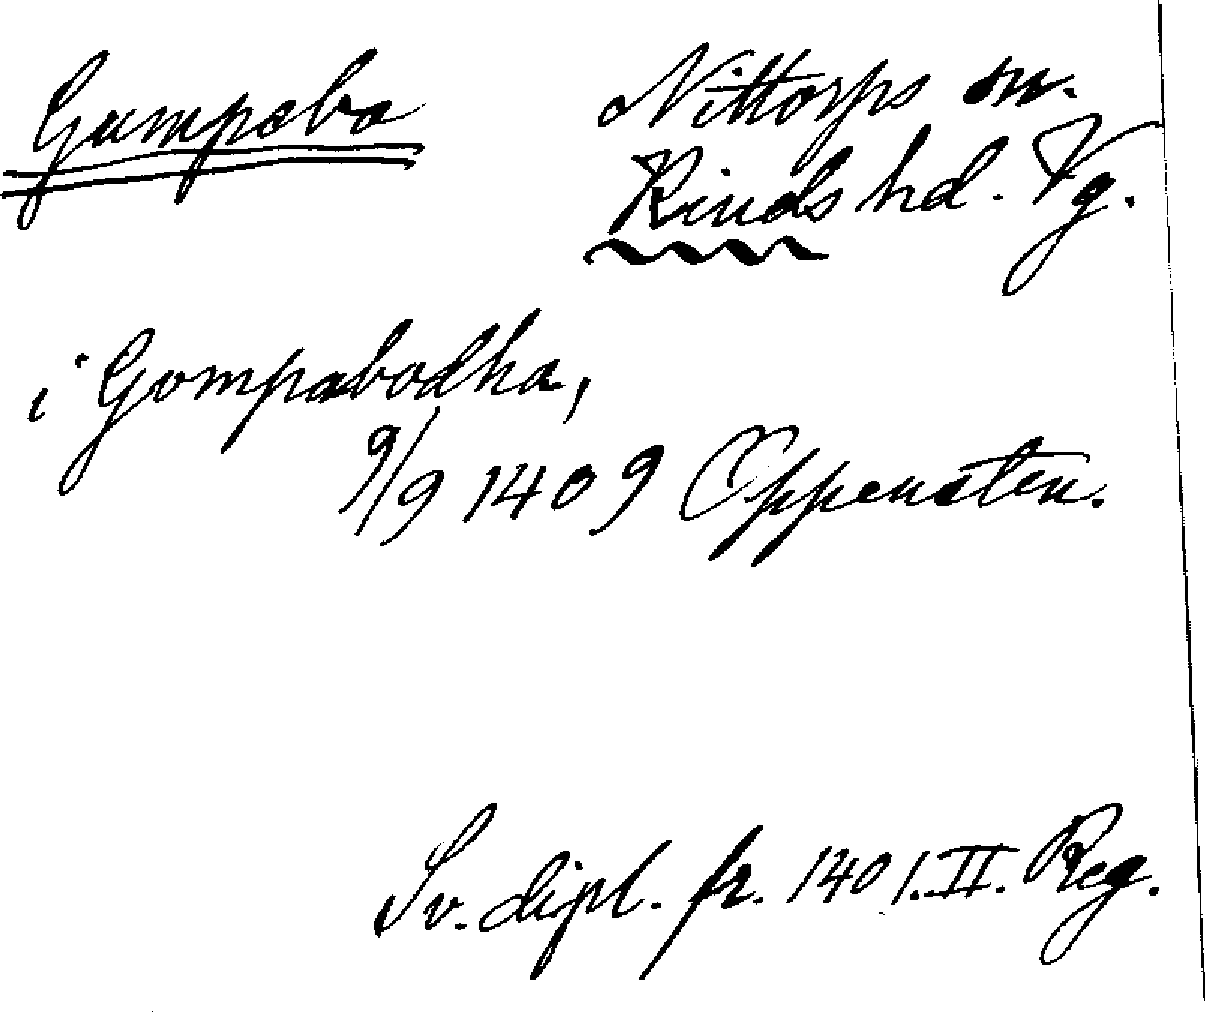 Gumpebo
Nittorps sn.
Kinds hd. Vg.
i Gompabodha,
9/9 1409 Öppensten.
Sv. dipl. fr. 1401. II. Reg.